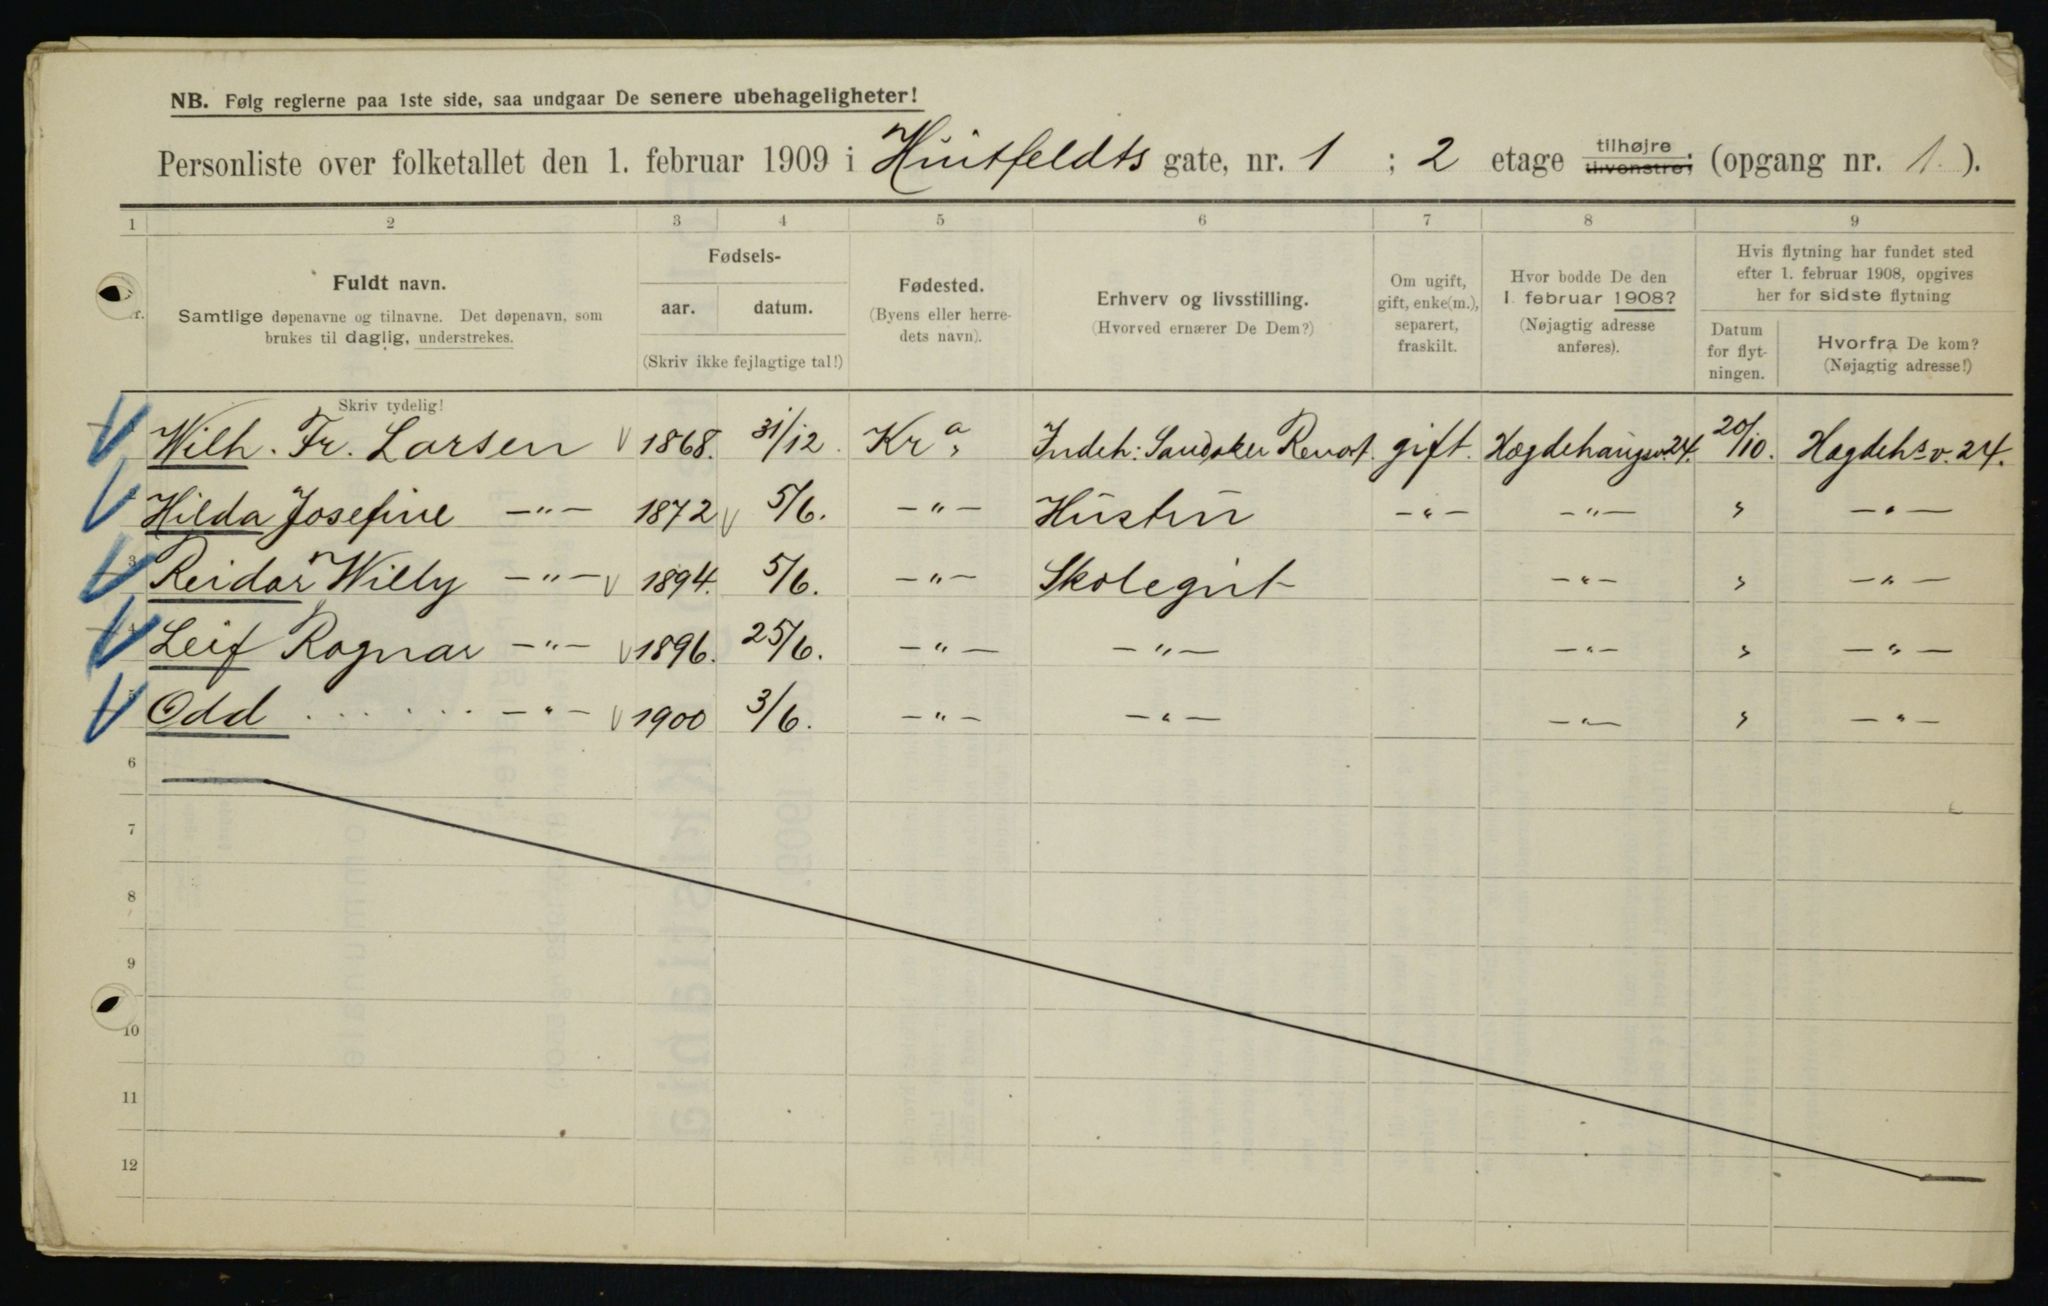 NB. Følg reglerne paa 1ste side, saa undgaar De senere ubehageligheter!
Personliste over folketallet den 1. februar 1909 i Huitfeldts gate, nr. 1 ; 2 etage tilhøjre tilvenstre; (opgang nr. 1 ).
1 2 3 4 5 6 7 8 9
Fuldt navn.
Samtlige døpenavne og tilnavne. Det døpenavn, som
brukes til daglig, understrekes.
Skriv tydelig!
Fødsels-
aar. datum.
(Skriv ikke fejlagtige tal!)
Fødested.
(Byens eller herre-
dets navn).
Erhverv og livsstilling.
(Hvorved ernærer De Dem?)
Om ugift,
gift, enke(m.),
separert,
fraskilt.
Hvor bodde De den
1. februar 1908?
(Nøjagtig adresse
anføres).
Hvis flytning har fundet sted
efter 1. februar 1908, opgives
her for sidste flytning
Datum
for flyt-
ningen.
Hvorfra De kom?
(Nøjagtig adresse!)
Wilh. Fr. Larsen 1868. 31/12. Kr a, Indeh: Sandaker Renov. gift. Hægdehaugsv. 24. 20/10. Hægdehs v. 24.
Hilda Josefine —"— 1872 5/6. —"— Hustru —"— —"— " —"—
3 Reidar Willy —"— 1894. 5/6. —"— Skolegut —"— " —"—
Leif Ragnar —"— 1896. 25/6. —"— —"— —"— " —"—
5 Odd ...... —"— 1900 3/6. —"— —"— —"— " —"—
6
7
8
9
10
11
12